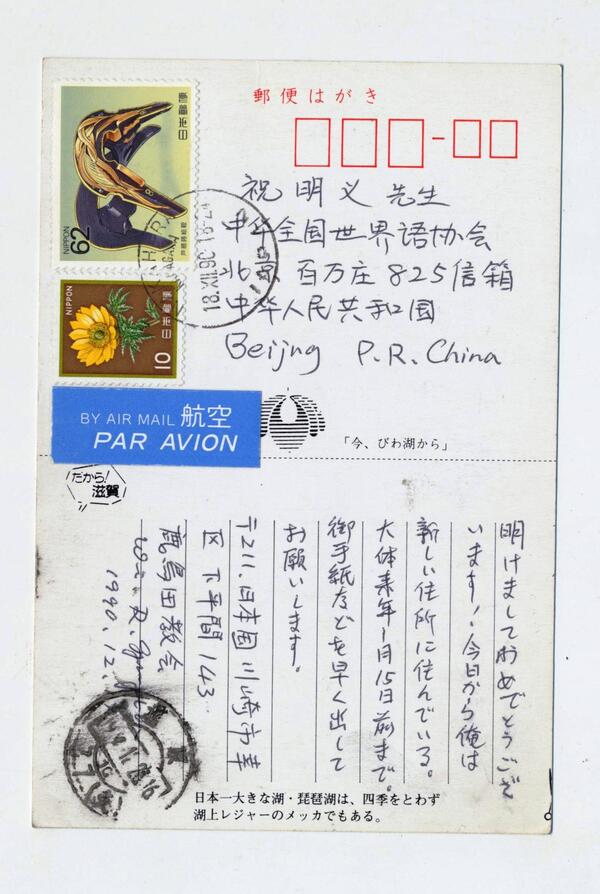 郵便はがき
日本郵便
NIPPON
62
日本郵便
NIPPON
10
18.XII.90
祝明义 先生
中华全国世界语协会
北京 百万庄 825信箱
中华人民共和国
Beijng P.R. China
BY AIR MAIL 航空
PAR AVION
「今、びわ湖から」
だから!
滋賀
明けましておめでとうござ
います!今日から俺は
新しい住所に住んでいる。
大体来年1月15日前まで。
御手紙などを早く出して
お願いします。
〒211.日本国川崎市幸
区下平間143
鹿島田教会
1990.12.
日本一大きな湖・琵琶湖は、四季をとわず
湖上レジャーのメッカでもある。